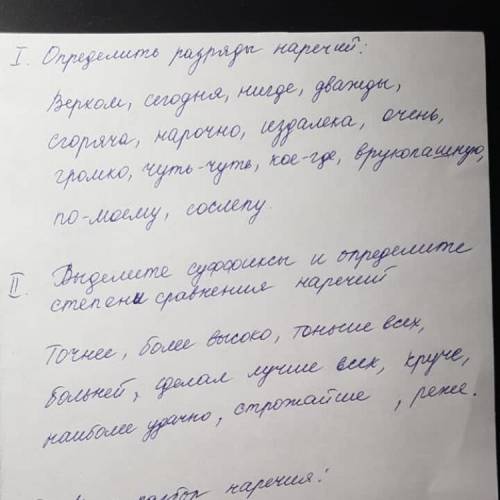 I. Определить разряды наречий:
Верхом, сегодня, нигде, дважды,
сгоряча, нарочно, издалека, очень,
громко, чуть-чуть, кое-где, врукопашную,
по-моему, сослепу.
II. Выделите суффиксы и определите
степени сравнения наречий
Точнее, более высоко, тоньше всех,
больней, сделал лучше всех, круче,
наиболее удачно, строжайше, реже.
разбор наречия: